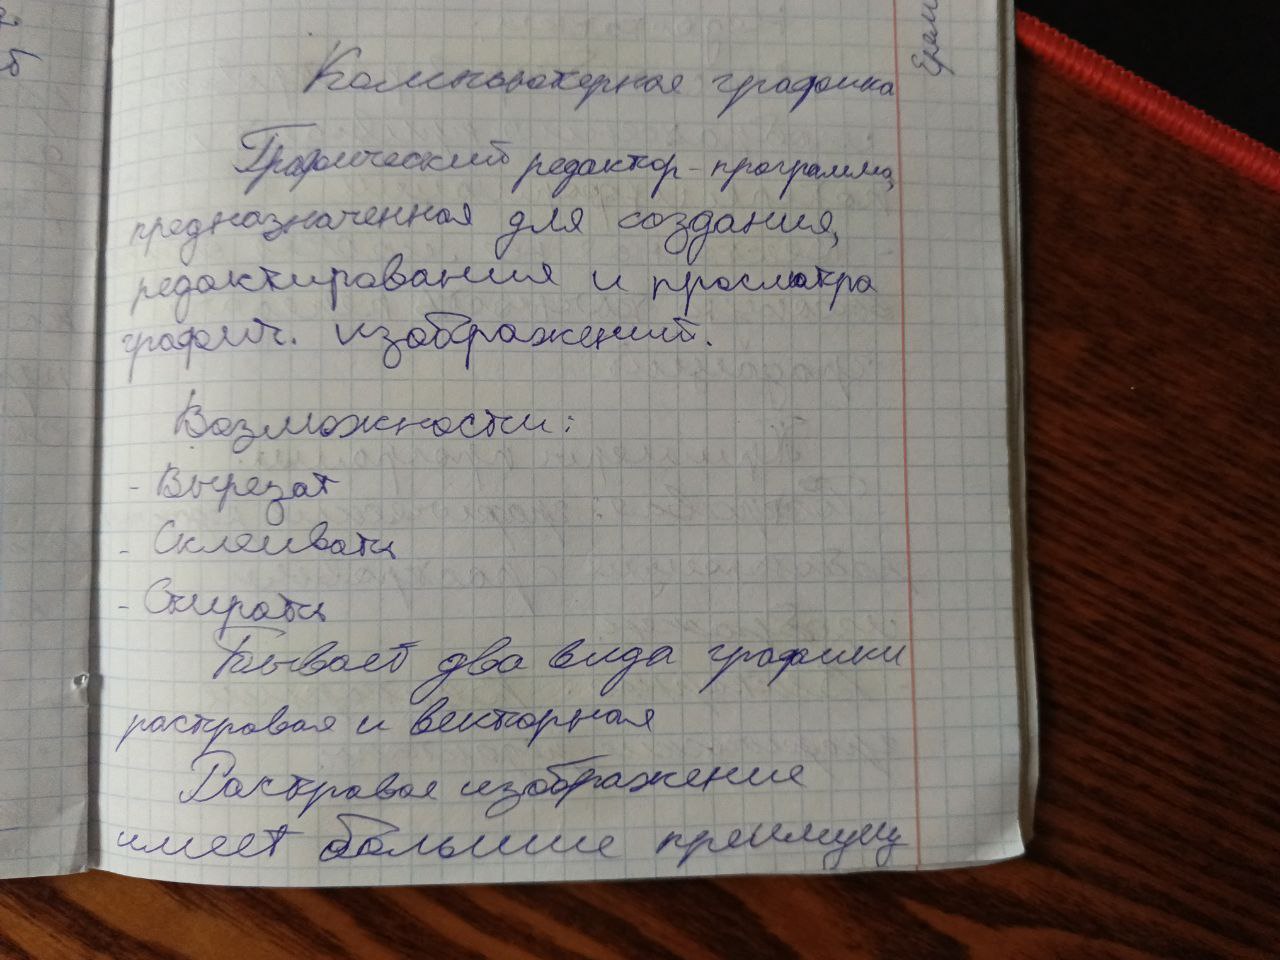 Компьютерная графика
Графический редактор - программа,
предназначенная для создания,
редактирования и просмотра
графич. изображений.
Возможности:
- Вырезат
- Склеивать
- Стирать
Бывает два вида графики
растровая и векторная
Растровое изображение
имеет большие преимущ